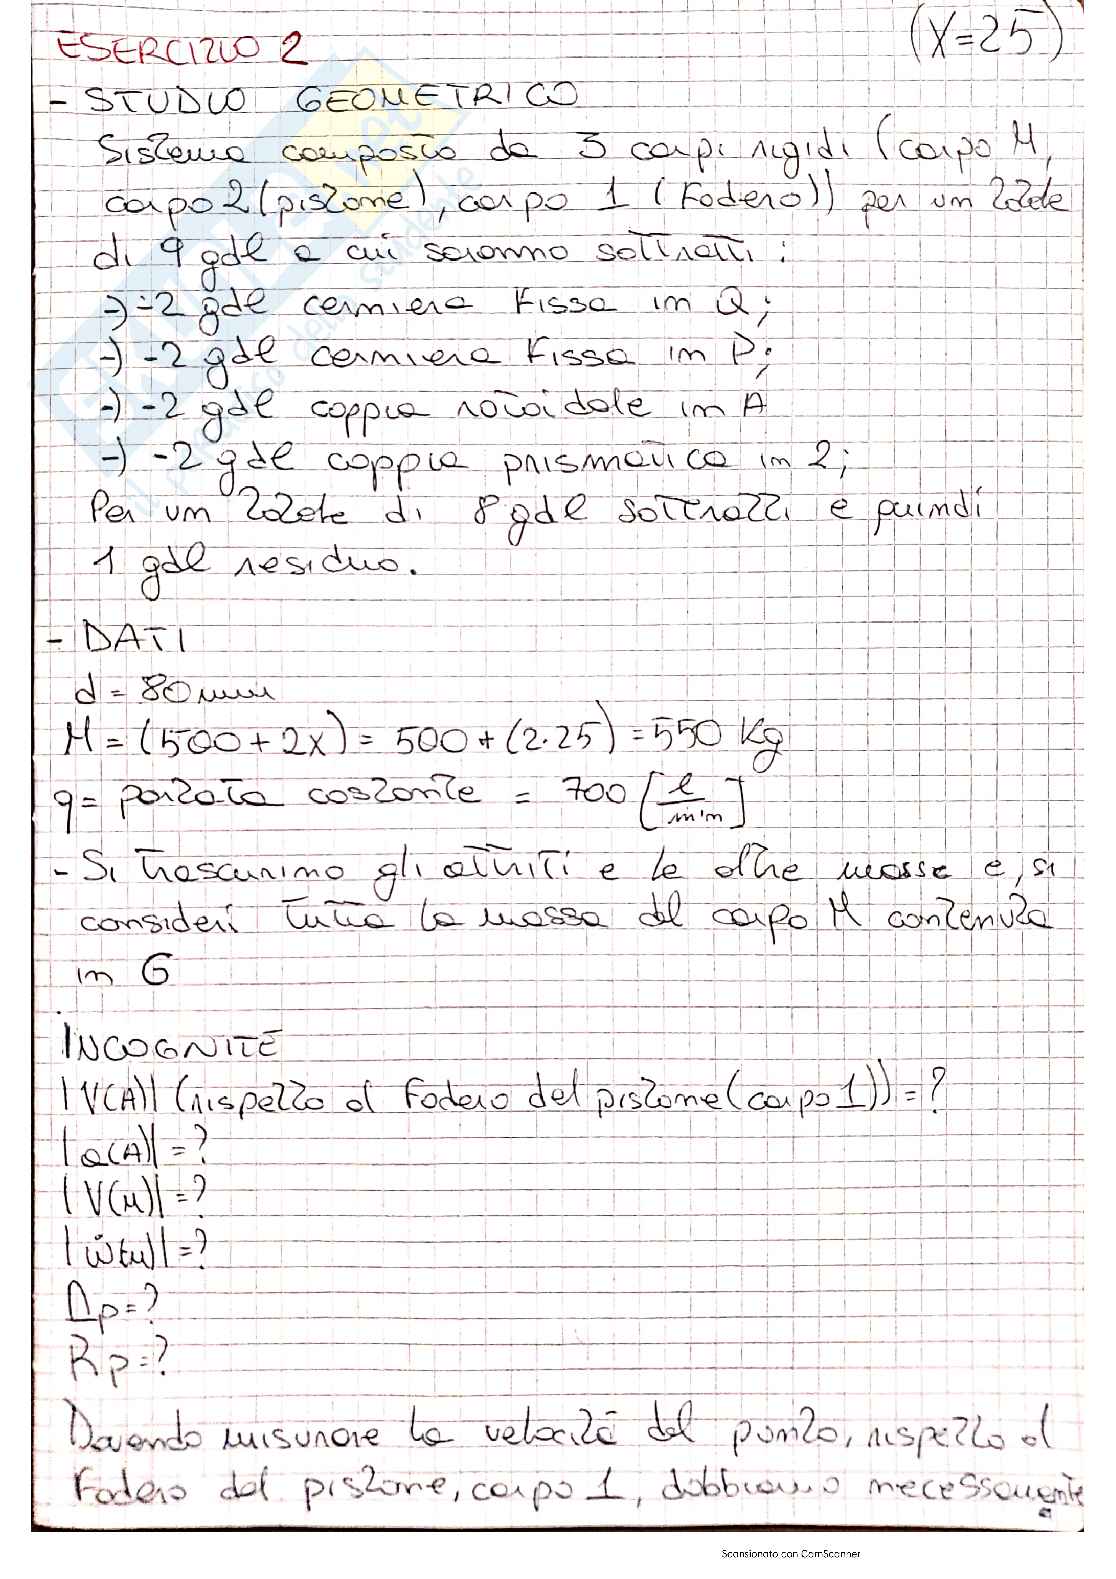 (X=25)
ESERCIZIO 2
- STUDIO GEOMETRICO
Sistema composto da 3 corpi rigidi (corpo M,
corpo 2 (pistone), corpo 1 (Fodero)) per un totale
di 9 gdl a cui saranno sottratti :
-) -2 gdl cerniera fissa in Q;
-) -2 gdl cerniera fissa in P;
-) -2 gdl coppia rotoidale in A
-) -2 gdl coppia prismatica in 2;
Per un totale di 8 gdl sottratti e quindi
1 gdl residuo.
- DATI
d = 80 mm
M = (500+2X) = 500+(2·25) = 550 Kg
q = portata costante = 700 [l/min]
- Si trascurino gli attriti e le altre masse e, si
consideri tutta la massa del corpo M contenuta
in G
INCOGNITE
|V(A)| (rispetto al fodero del pistone (corpo 1)) = ?
|a(A)| = ?
|V(M)| = ?
|ẇ(M)| = ?
Δp = ?
Rp = ?
Dovendo misurare la velocità del punto, rispetto al
fodero del pistone, corpo 1, dobbiamo necessariamente
Scansionato con CamScanner